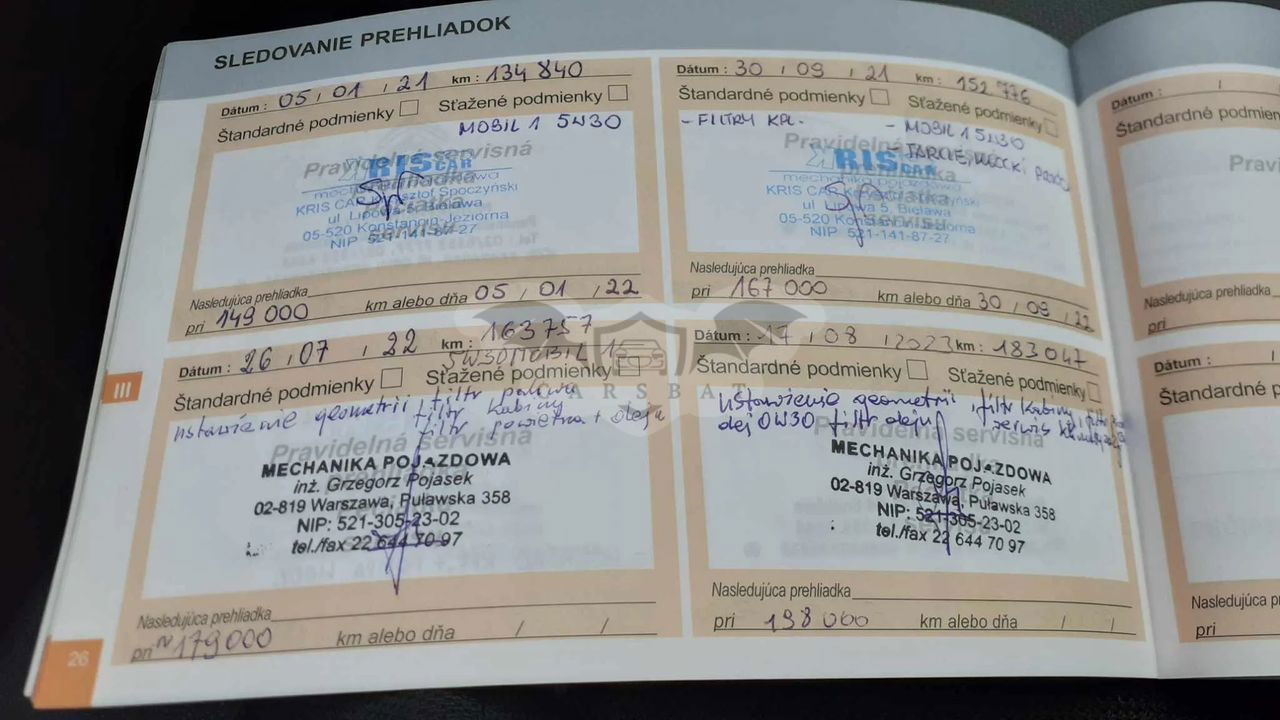 SLEDOVANIE PREHLIADOK
Dátum : 05 / 01 / 21 km : 134 840
Štandardné podmienky Sťažené podmienky
MOBIL 1 5W30
Pravidelná servisná
KRIS CAR
05-520 Konstancin-Jeziorna
NIP 521-141-87-27
Nasledujúca prehliadka
pri 149 000 km alebo dňa 05 / 01 / 22
Dátum : 30 / 09 / 21 km : 152 776
Štandardné podmienky Sťažené podmienky
- FILTRY KPL. - MOBIL 1 5W30
- TARCZE, KLOCKI
Pravidelná
KRIS CAR
ul. Lipowa 5, Bielawa
05-520 Konstancin-Jeziorna
NIP 521-141-87-27
Nasledujúca prehliadka
pri 167 000 km alebo dňa 30 / 09 / 22
Dátum : 26 / 07 / 22 km : 163757
5W30 MOBIL 1
Štandardné podmienky Sťažené podmienky
ustawienie geometrii filtr paliwa
filtr kabiny
filtr powietrza + oleju
Pravidelná servisná
MECHANIKA POJAZDOWA
inż. Grzegorz Pojasek
02-819 Warszawa, Puławska 358
NIP: 521-305-23-02
tel./fax 22 644 70 97
Nasledujúca prehliadka
pri ~179000 km alebo dňa / /
Dátum : 17 / 08 / 2023 km : 183 047
Štandardné podmienky Sťažené podmienky
ustawienie geometrii, filtr kabiny, filtr
olej 0W30 filtr oleju serwis klimatyzacji
Pravidelná servisná
MECHANIKA POJAZDOWA
inż. Grzegorz Pojasek
02-819 Warszawa, Puławska 358
NIP: 521-305-23-02
tel./fax 22 644 70 97
Nasledujúca prehliadka
pri 198 000 km alebo dňa / /
CARSBAT
III
26
Dátum : /
Štandardné podmien
Pravi
Nasledujúca prehliadka
pri
Dátum : /
Štandardné po
Nasledujúca p
pri